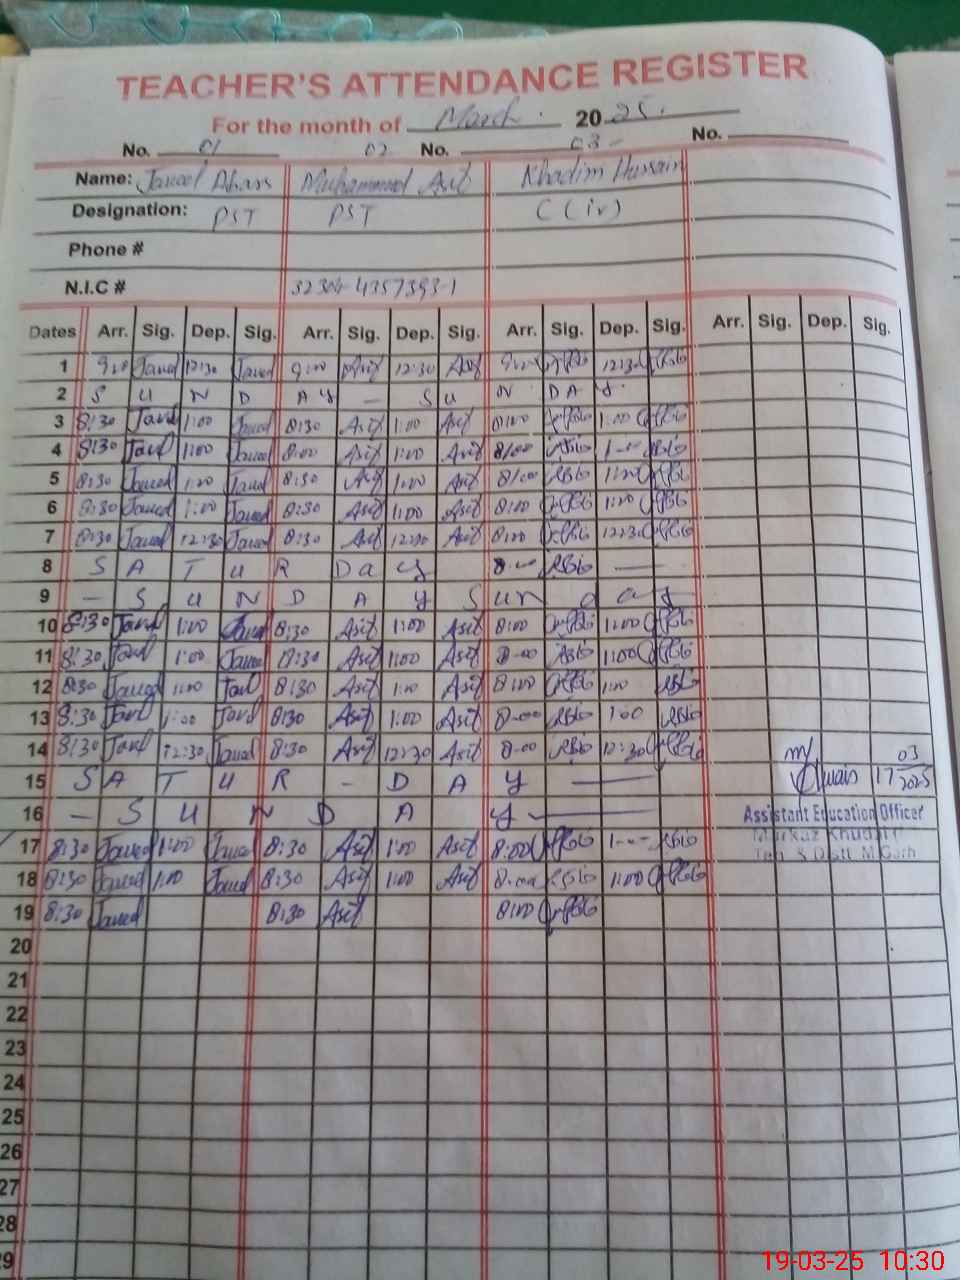 TEACHER'S ATTENDANCE REGISTER
For the month of March. 2025.
No. 01 02 No. 03 - No.
Name: Javed Muhammad Asif Khadim Hussain
Designation: PST PST C (iv)
Phone #
N.I.C # 32304-4357393-1
Dates Arr. Sig. Dep. Sig. Arr. Sig. Dep. Sig. Arr. Sig. Dep. Sig. Arr. Sig. Dep. Sig.
1 9:00 Javed 12:30 Javed 9:00 Asif 12:30 Asif 9:00 12:30
2 S U N D A Y — S U N D A Y
3 8:30 Javed 1:00 Javed 8:30 Asif 1:00 Asif 8:00 1:00
4 8:30 Javed 1:00 Javed 8:00 Asif 1:00 Asif 8:00 1:00
5 8:30 Javed 1:00 Javed 8:30 Asif 1:00 Asif 8:00 1:00
6 8:30 Javed 1:00 Javed 8:30 Asif 1:00 Asif 8:00 1:00
7 8:30 Javed 12:30 Javed 8:30 Asif 12:30 Asif 8:00 12:30
8 S A T U R D a y 8:00 —
9 — S U N D A Y S u n d a y
10 8:30 Javed 1:00 Javed 8:30 Asif 1:00 Asif 8:00 1:00
11 8:30 Javed 1:00 Javed 8:30 Asif 1:00 Asif 8:00 1:00
12 8:30 Javed 1:00 Javed 8:30 Asif 1:00 Asif 8:00 1:00
13 8:30 Javed 1:00 Javed 8:30 Asif 1:00 Asif 8:00 1:00
14 8:30 Javed 12:30 Javed 8:30 Asif 12:30 Asif 8:00 12:30
15 S A T U R - D A Y —
16 — S U N D A Y —
17 03 2025
Assistant Education Officer
Markaz Khudai
Teh. & Distt. M.Garh
17 8:30 Javed 1:00 Javed 8:30 Asif 1:00 Asif 8:00 1:00
18 8:30 Javed 1:00 Javed 8:30 Asif 1:00 Asif 8:00 1:00
19 8:30 Javed 8:30 Asif 8:00
20
21
22
23
24
25
26
27
28
29
19-03-25 10:30